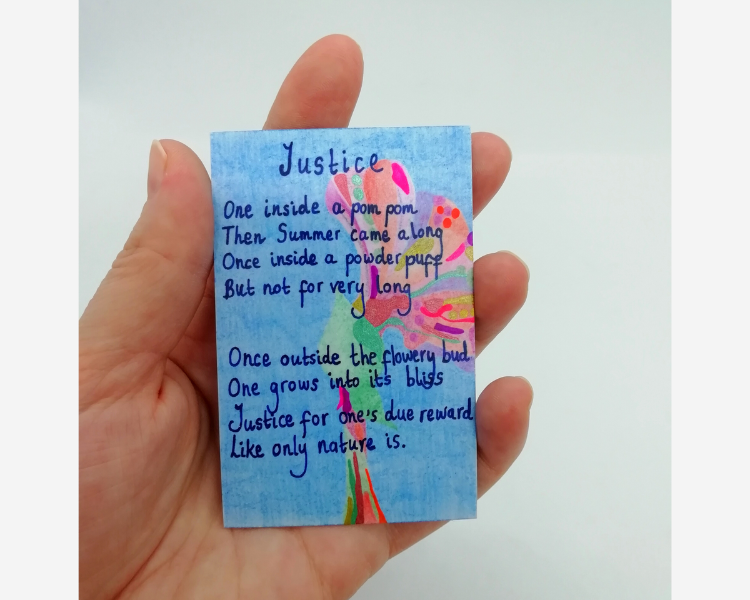 Justice
One inside a pom pom
Then Summer came along
Once inside a powder puff
But not for very long
Once outside the flowery bud
One grows into its bliss
Justice for one's due reward
Like only nature is.